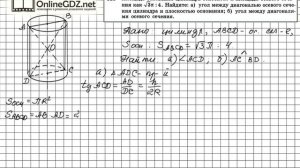 OnlineGDZ.net
ния как √3π : 4. Найдите: а) угол между диагональю осевого сече-
ния цилиндра и плоскостью основания; б) угол между диагоналя-
ми осевого сечения.
Дано цилиндр, ABCD - ос. сеч-е,
Sосн : SABCD = √3π : 4
Найти а) ∠ACD, б) AC^BD
а) △ ADC - пр-й
tg ACD = AD/DC = AD/2R
Sосн = πR²
SABCD = AB · AD = 2
A
B
O
D
C